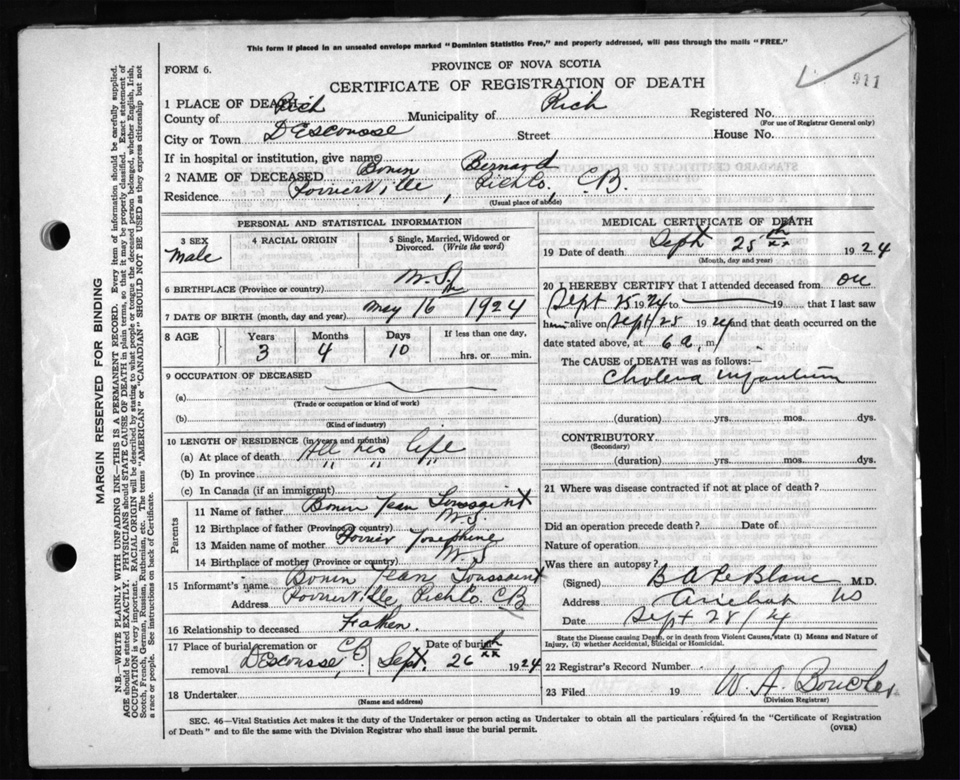 This form if placed in an unsealed envelope marked "Dominion Statistics Free," and properly addressed, will pass through the mails "FREE."
PROVINCE OF NOVA SCOTIA
911
FORM 6.
CERTIFICATE OF REGISTRATION OF DEATH
1 PLACE OF DEATH
County of Rich Municipality of Rich Registered No.
(For use of Registrar General only)
City or Town D'Escousse Street House No.
If in hospital or institution, give name
2 NAME OF DECEASED Bonin Bernard
Residence Poirierville, Rich Co, CB.
(Usual place of abode)
PERSONAL AND STATISTICAL INFORMATION
3 SEX Male
4 RACIAL ORIGIN
5 Single, Married, Widowed or Divorced. (Write the word)
6 BIRTHPLACE (Province or country) N.S.
7 DATE OF BIRTH (month, day and year) May 16 1924
8 AGE Years 3 Months 4 Days 10
If less than one day,
hrs. or min.
9 OCCUPATION OF DECEASED
(a)
(Trade or occupation or kind of work)
(b)
(Kind of industry)
10 LENGTH OF RESIDENCE (in years and months)
(a) At place of death All his life
(b) In province " " "
(c) In Canada (if an immigrant)
Parents
11 Name of father Bonin Jean Toussaint
12 Birthplace of father (Province or country) N.S.
13 Maiden name of mother Poirier Josephine
14 Birthplace of mother (Province or country) N.S
15 Informant's name Bonin Jean Toussaint
Address Poirierville Rich Co. CB
16 Relationship to deceased Father.
17 Place of burial, cremation or removal D'Escousse, CB. Date of burial Sept. 26th 1924
18 Undertaker
(Name and address)
MEDICAL CERTIFICATE OF DEATH
19 Date of death Sept 25th 1924
(Month, day and year)
20 I HEREBY CERTIFY that I attended deceased from on
Sept 25 1924 to 19 that I last saw
him alive on Sept 25 1924 and that death occurred on the
date stated above, at 6 a, m
The CAUSE of DEATH was as follows:—
Cholera Infantum
(duration) yrs. mos. dys.
CONTRIBUTORY
(Secondary)
(duration) yrs. mos. dys.
21 Where was disease contracted if not at place of death?
Did an operation precede death? Date of
Nature of operation
Was there an autopsy?
(Signed) B A LeBlanc M.D.
Address Arichat NS
Date Sept 28/24
State the Disease causing Death, or in death from Violent Causes, state (1) Means and Nature of Injury, (2) whether Accidental, Suicidal or Homicidal.
22 Registrar's Record Number
23 Filed 19 W. A. Boucher
(Division Registrar)
SEC. 46—Vital Statistics Act makes it the duty of the Undertaker or person acting as Undertaker to obtain all the particulars required in the "Certificate of Registration
of Death" and to file the same with the Division Registrar who shall issue the burial permit.
(OVER)
MARGIN RESERVED FOR BINDING
N.B.—WRITE PLAINLY WITH UNFADING INK—THIS IS A PERMANENT RECORD. Every item of information should be carefully supplied.
AGE should be stated EXACTLY. PHYSICIANS should STATE CAUSE OF DEATH in plain terms, so that it may be properly classified. Exact statement of
OCCUPATION is very important. RACIAL ORIGIN will be described by stating to what people or tongue the deceased person belonged, whether English, Irish,
Scotch, French, German, Russian, Ruthenian, etc. The terms "AMERICAN" or "CANADIAN" SHOULD NOT BE USED as they express citizenship but not
a race or people. See instructions on back of Certificate.